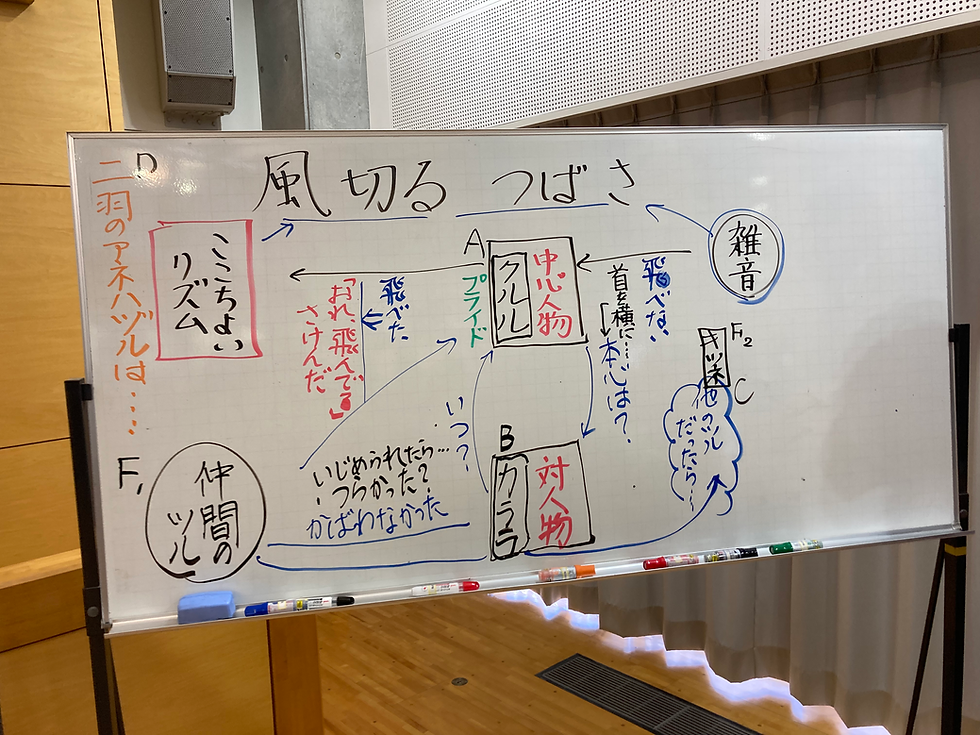 風切る つばさ
D
二羽のアネハヅルは・・・・
ここちよい
リズム
雑音
A
クルル
中心人物
プライド
飛べない
首を横に……
→本心は?
飛べた
「おれ、飛んでる」
さけんだ
キツネ
F2
C
他のツル
だったら…
いつ?
B
カララ
対人物
いじめられたら…
つらかった?
かばわなかった
F1
仲間の
ツル